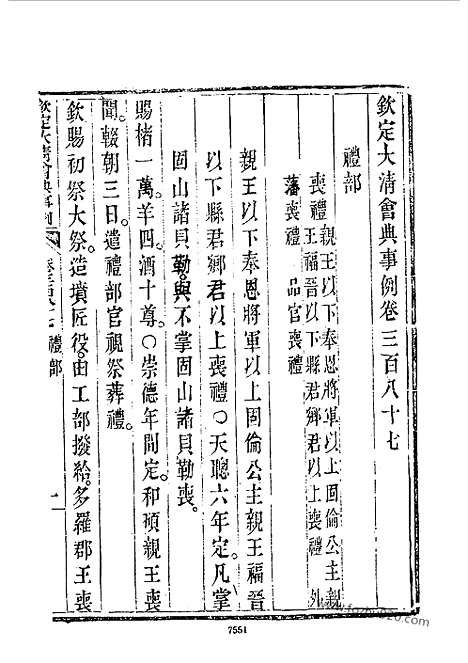 欽定大清會典事例卷三百八十七
禮部
喪禮 親王以下奉恩將軍以上固倫公主親
王福晉以下縣君鄉君以上喪禮 外
藩喪禮 品官喪禮
親王以下奉恩將軍以上固倫公主親王福晉
以下縣君鄉君以上喪禮○天聰六年定。凡掌
固山諸貝勒。與不掌固山諸貝勒喪。
賜楮一萬。羊四。酒十尊。○崇德年間定。和碩親王喪
聞。輟朝三日。遣禮部官視祭葬禮。
欽賜初祭大祭。造墳匠役。由工部撥給。多羅郡王喪
欽定大清會典事例 禮部 一
7551